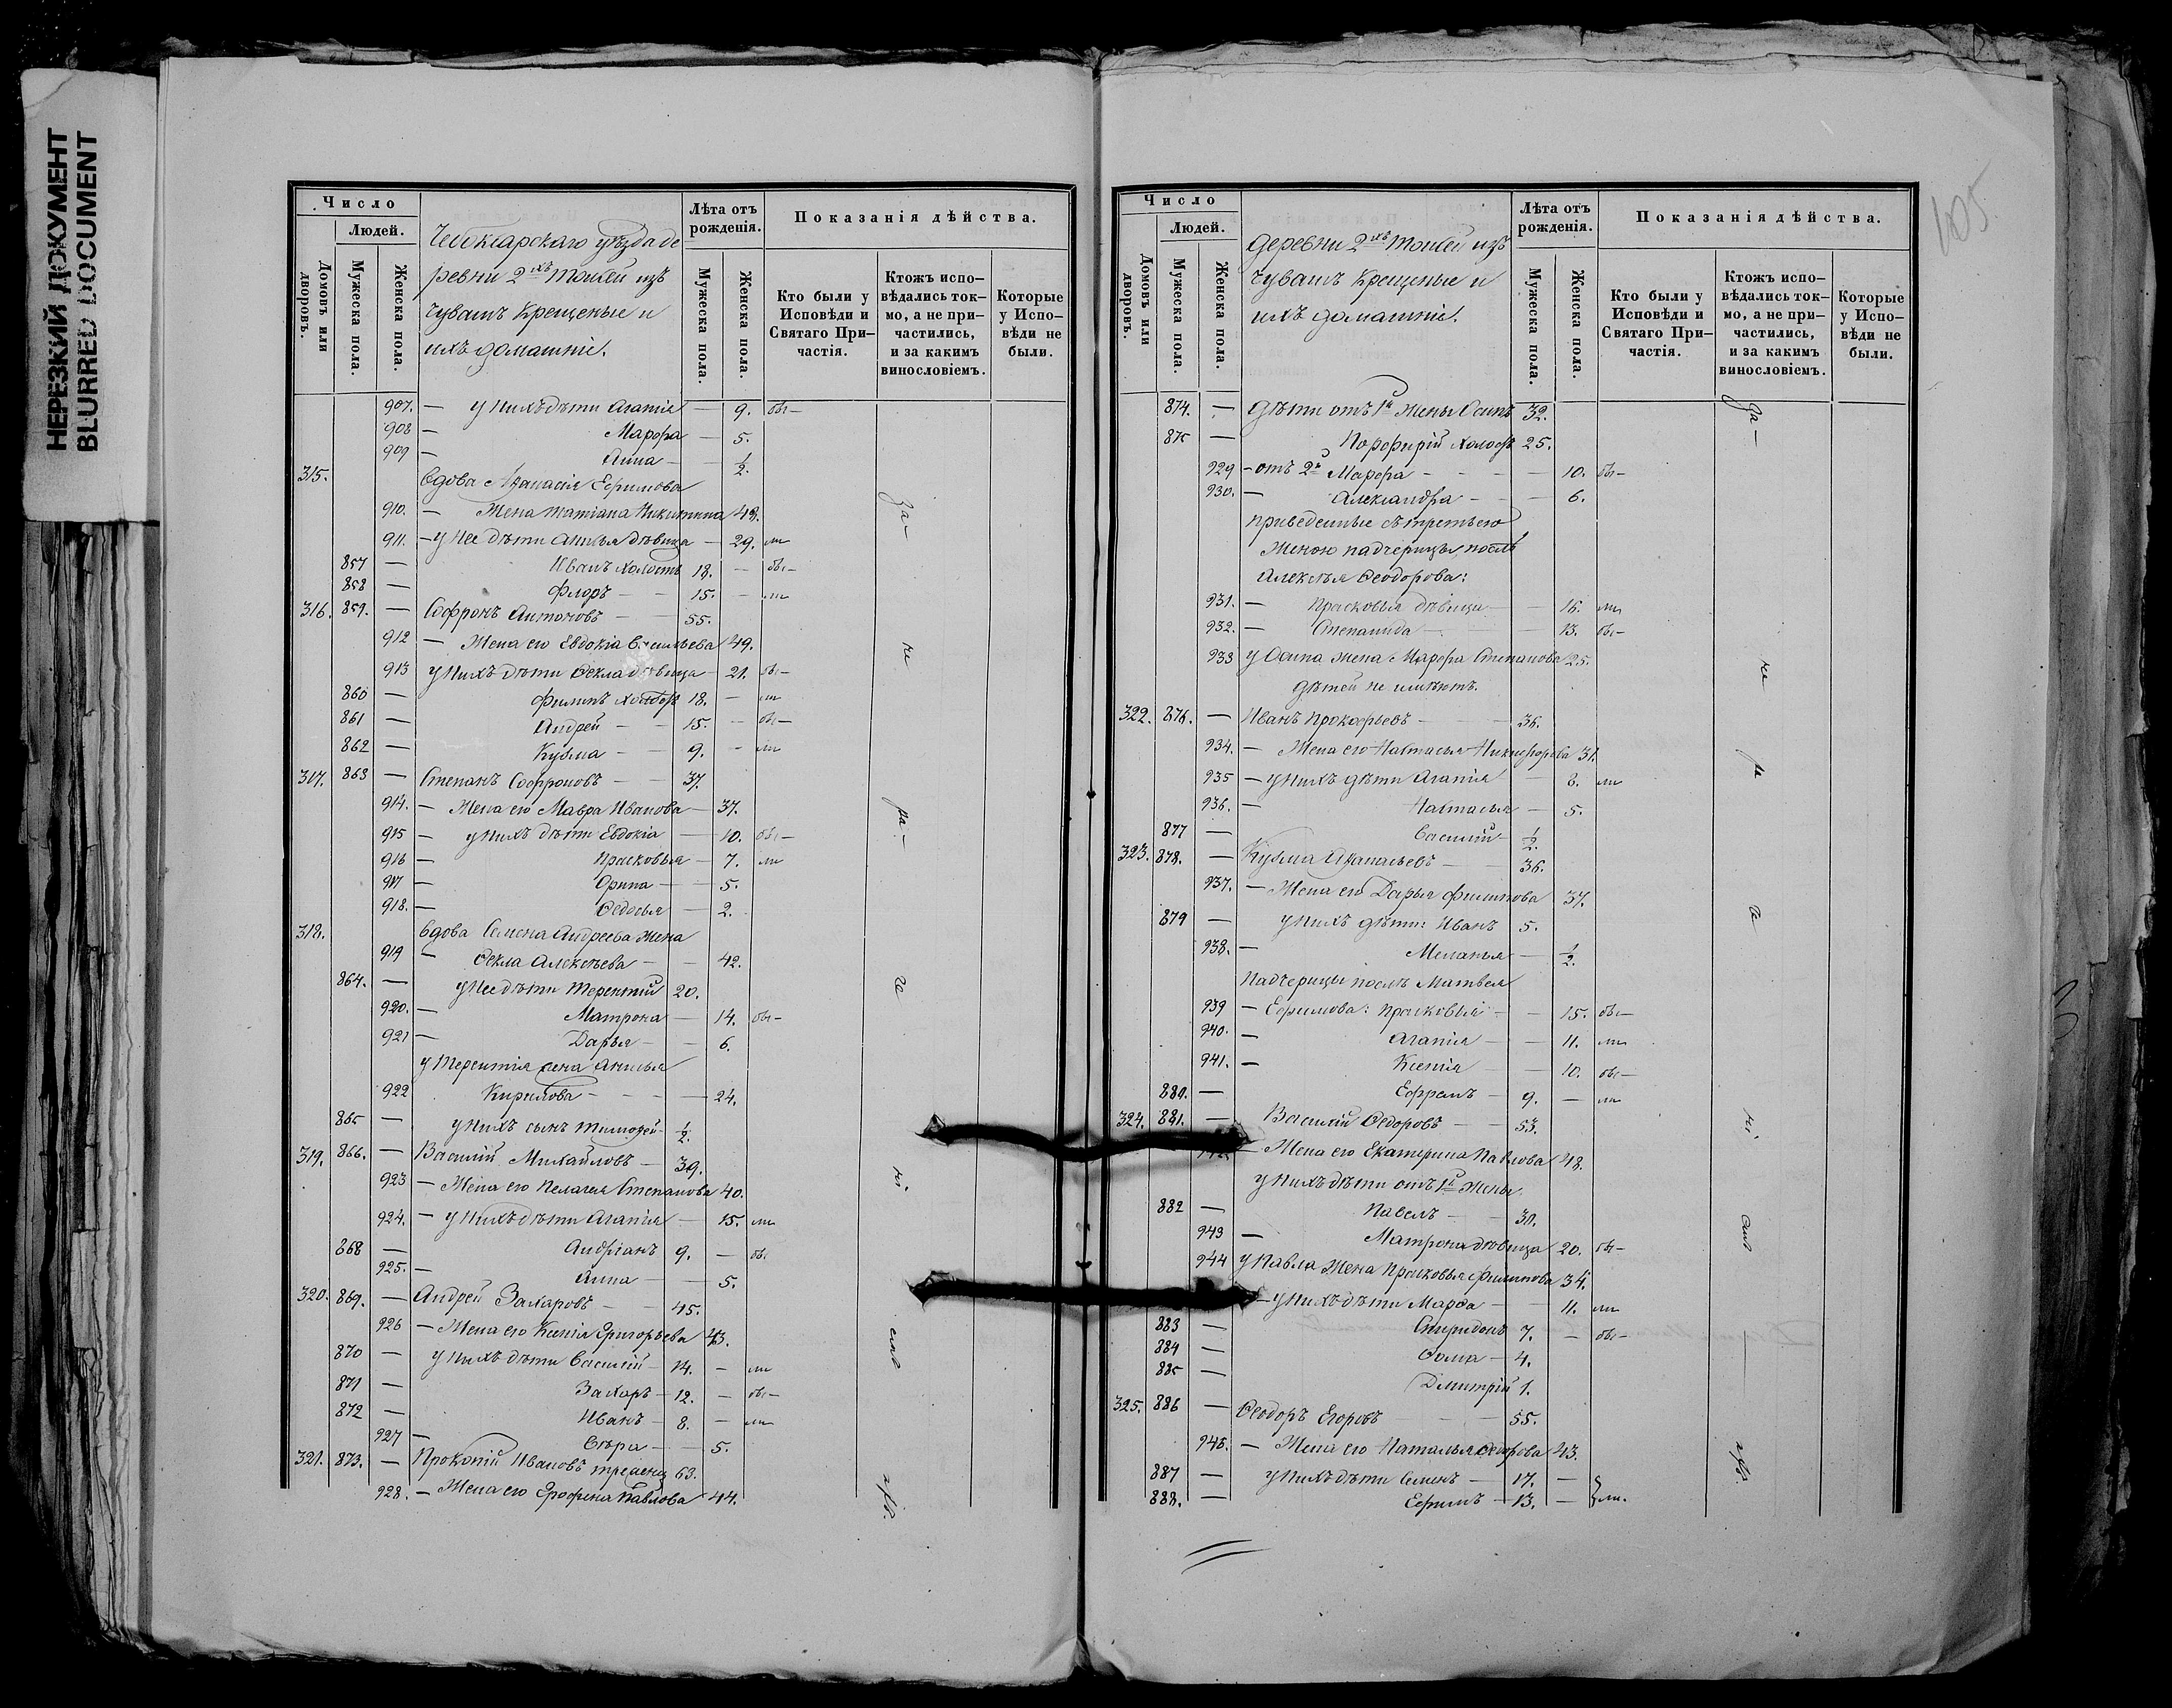 НЕРЕЗКИЙ ДОКУМЕНТ
BLURRED DOCUMENT
Число
Людей.
Домовъ или дворовъ.
Мужеска пола.
Женска пола.
Чебоксарскаго уѣзда де
ревни 2хъ Тоисей изъ
Чувашъ Крещеные и
ихъ домашніе.
Лѣта отъ рожденія.
Мужеска пола.
Женска пола.
Показанія дѣйства.
Кто были у Исповѣди и Святаго При-
частія.
Ктожъ испо-
вѣдались ток-
мо, а не при-
частились,
и за какимъ
винословіемъ.
Которые
у Испо-
вѣди не
были.
907. — у нихъ дѣти Агапія — 9.
908 — Марѳра — 5.
909 — Анна — ½.
315. Вдова Аѳанасія Ефимова
910. — Жена Татіана Никитина 48.
911. — у нее дѣти Анисья дѣвица — 29.
857 — Иванъ холостъ 18. —
858 — Флоръ — 15. —
316. 859. — Софронъ Антоновъ — 55.
912 — Жена его Евдокія Васильева 49.
913 у нихъ дѣти Ѳекла дѣвица — 21.
860 — Филипъ холостъ 18. —
861 — Андрей — 15. —
862 — Кузма — 9. —
317. 863 — Степанъ Софроновъ — 37.
914. — Жена его Мавра Иванова — 37.
915 — у нихъ дѣти Евдокія — 10.
916 — Прасковья — 7.
917 — Орина — 5.
918. — Ѳедосья — 2.
318. Вдова Семена Андреева Жена
919 — Ѳекла Алексѣева — 42.
864. — у нее дѣти Терентій 20.
920. — Матрона — 14.
921 — Дарья — 6.
у Терентія жена Анисья
922 Кирилова — 24.
865 — у нихъ сынъ Тимоѳей ½.
319. 866. — Василій Михайловъ — 39.
923 — Жена его Пелагея Степанова 40.
924. — у нихъ дѣти Агапія — 15.
868 — Андріанъ 9. —
925. — Анна — 5.
320. 869. — Андрей Захаровъ — 45.
926 — Жена его Ксенія Григорьева 43.
870 — у нихъ дѣти Василій — 14. —
871 — Захаръ — 12. —
872 — Иванъ — 8. —
927 — Вѣра — 5.
321. 873. — Прокопій Ивановъ 63.
928. — Жена его Павлова 44.
За не ра че ні емъ
105
Число
Людей.
Домовъ или дворовъ.
Мужеска пола.
Женска пола.
деревни 2хъ Тоисей изъ
Чувашъ Крещеные и
ихъ домашніе.
Лѣта отъ рожденія.
Мужеска пола.
Женска пола.
Показанія дѣйства.
Кто были у Исповѣди и Святаго При-
частія.
Ктожъ испо-
вѣдались ток-
мо, а не при-
частились,
и за какимъ
винословіемъ.
Которые
у Испо-
вѣди не
были.
874. — Дѣти отъ 1й Жены Осипъ 32.
875 — Порфирій холостъ 25.
929 — отъ 2й Марѳра — 10.
930. — Александра — 6.
приведенные съ третьею
Женою падчерицы послѣ
Алексѣя Ѳеодорова:
931. — Прасковья дѣвица — 16.
932. — Степанида — 13.
933 у Осипа жена Марѳра Степанова 25.
дѣтей не имѣютъ.
322. 876. — Иванъ Прокофьевъ — 36.
934. — Жена его Настасья Никифорова 31.
935 — у нихъ дѣти Агапія — 8.
936. — Настасья — 5.
877 — Василій — ½.
323. 878. — Кузма Аѳанасьевъ — 36.
937. — Жена его Дарья Филипова 37.
879 — у нихъ дѣти: Иванъ 5.
938. — Меланья — ½.
Падчерицы послѣ Матвея
939 — Ефимова: Прасковья — 15.
940. — Агапія — 11.
941. — Ксенія — 10.
880. — Ефремъ — 9. —
324. 881. — Василій Ѳедоровъ — 53.
942. — Жена его Екатерина Павлова 48.
у нихъ дѣти отъ 1й Жены
882 — Павелъ — 30.
943 — Матрона дѣвица 20.
944 у Павла Жена Прасковья Филипова 34.
— у нихъ дѣти Марѳа — 11.
883 — Спиридонъ 7. —
884 — Ѳома — 4.
885 — Димитрій 1.
325. 886 — Ѳеодоръ Егоровъ — 55.
946. — Жена его Наталья Ѳедорова 43.
887 — у нихъ дѣти Семенъ — 17. —
888. — Ефимъ — 13. —
За не ра че ні емъ